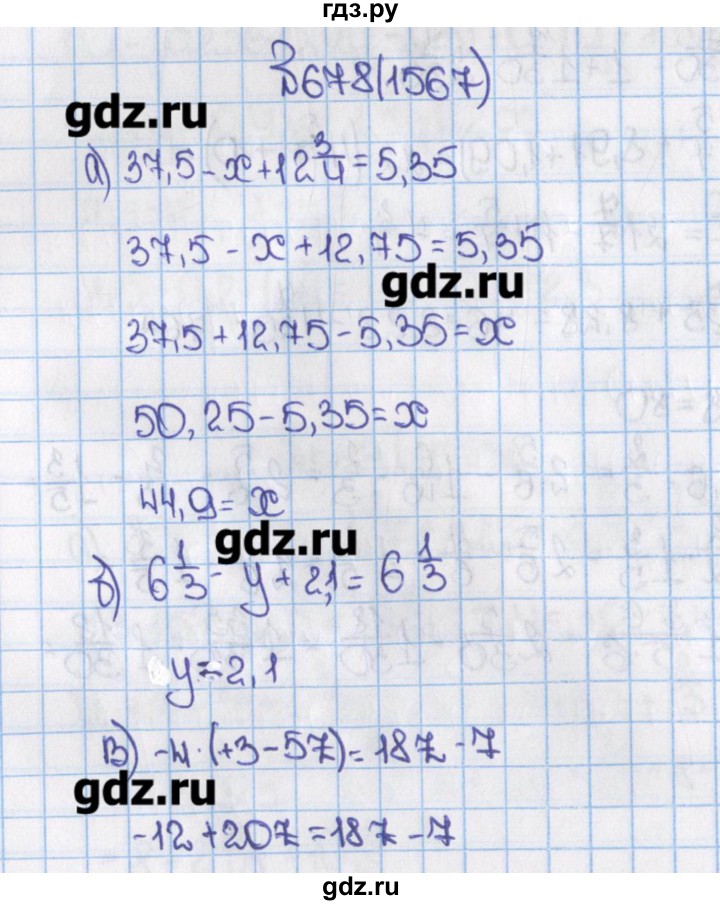 гдз.ру
№678(1567)
gdz.ru
а) 37,5 - x + 12 3/4 = 5,35
37,5 - x + 12,75 = 5,35
gdz.ru
37,5 + 12,75 - 5,35 = x
50,25 - 5,35 = x
44,9 = x
gdz.ru
б) 6 1/3 - y + 2,1 = 6 1/3
y = 2,1
в) -4·(+3 - 5z) = 18z - 7
gdz.ru
-12 + 20z = 18z - 7
gdz.ru